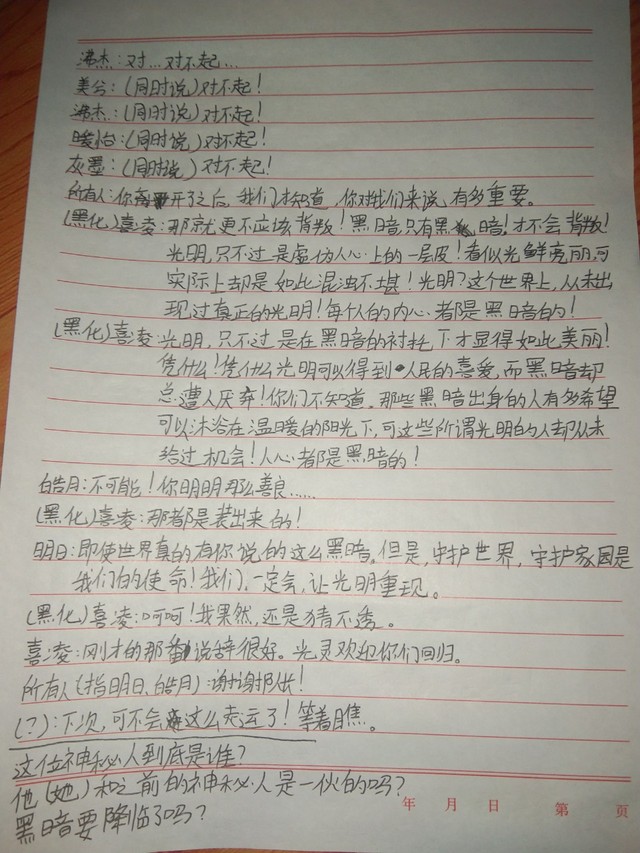 沸杰：对…对不起…
美兮：（同时说）对不起！
沸杰：（同时说）对不起！
暖怡：（同时说）对不起！
灰墨：（同时说）对不起！
所有人：你离开了之后，我们才知道，你对我们来说，有多重要。
（黑化）喜凌：那就更不应该背叛！黑暗，只有黑暗！才不会背叛！
光明，只不过是虚伪人心上的一层皮！看似光鲜亮丽，可
实际上却是如此混浊不堪！光明？这个世界上，从未出
现过真正的光明！每个人的内心都是黑暗的！
（黑化）喜凌：光明，只不过是在黑暗的衬托下才显得如此美丽！
凭什么！凭什么光明可以得到人民的喜爱，而黑暗却
总遭人厌弃！你们不知道，那些黑暗出身的人有多希望
可以沐浴在温暖的阳光下，可这些所谓光明的人却从未
给过机会！人心都是黑暗的！
皓月：不可能！你明明那么善良……
（黑化）喜凌：那都是装出来的！
明日：即使世界真的有你说的这么黑暗。但是，守护世界，守护家园是
我们的使命！我们，一定会，让光明重现。
（黑化）喜凌：呵呵！我果然，还是猜不透。
喜凌：刚才的那番说辞很好。光灵欢迎你们回归。
所有人（指明日、皓月）：谢谢队长！
（？）：下次，可不会这么走运了！等着瞧。
这位神秘人到底是谁？
他（她）和之前的神秘人是一伙的吗？
黑暗要降临了吗？
年 月 日 第 页